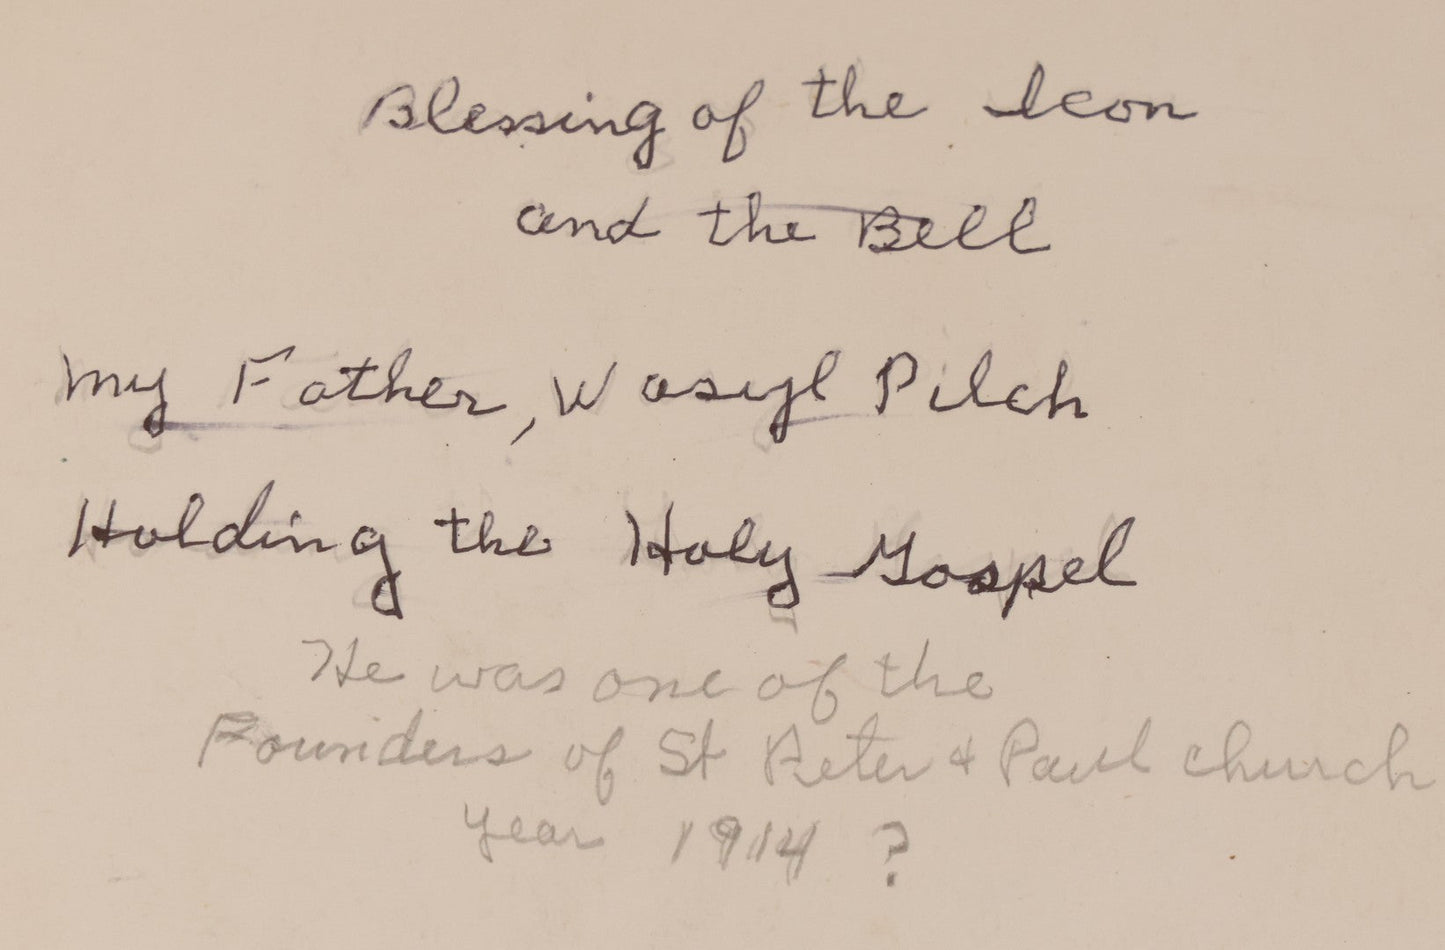 Blessing of the Icon
and the Bell
My Father, Wasyl Pilch
Holding the Holy Gospel
He was one of the
Founders of St Peter & Paul church
year 1914 ?